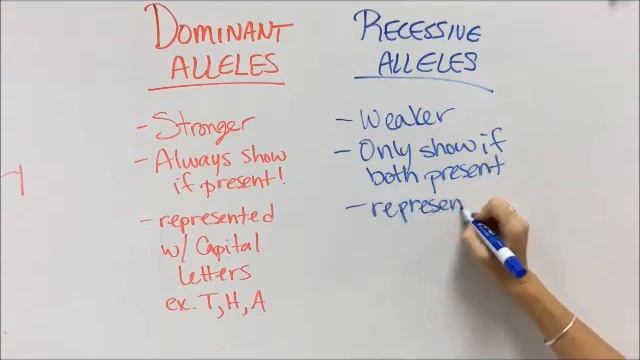 DOMINANT
ALLELES
- Stronger
- Always show
if present!
- represented
w/ Capital
letters
ex. T, H, A
RECESSIVE
ALLELES
- Weaker
- Only show if
both present
- represen